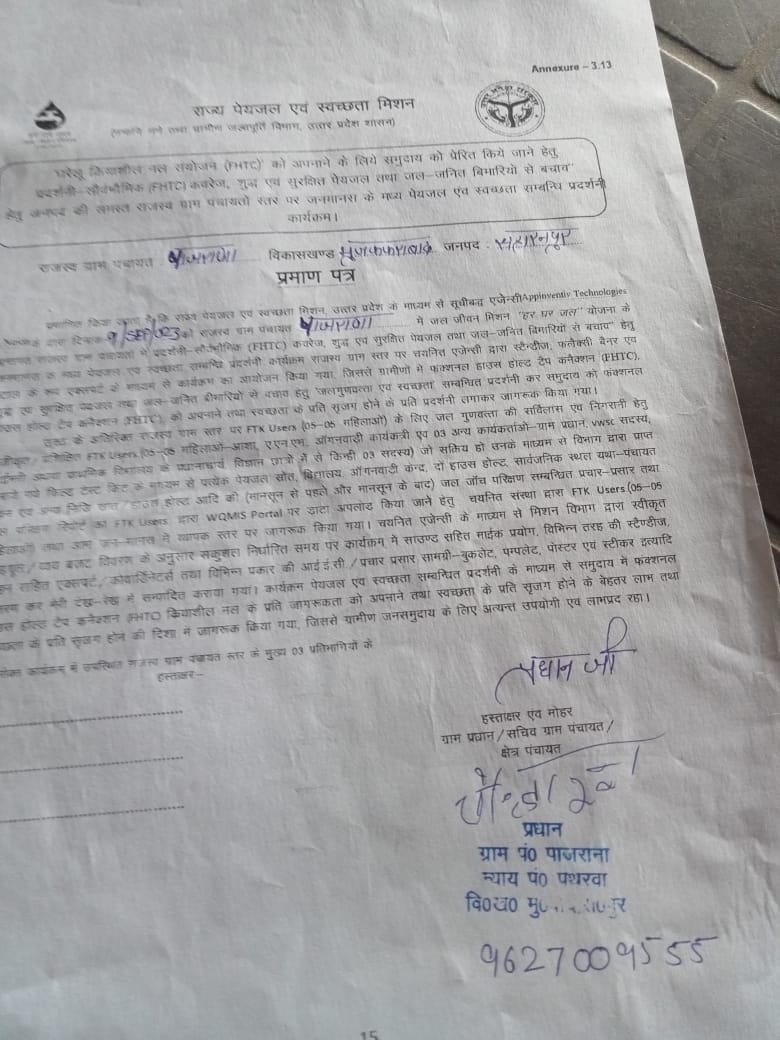 Annexure – 3.13
राज्य पेयजल एवं स्वच्छता मिशन
(नमामि गंगे तथा ग्रामीण जलापूर्ति विभाग, उत्तर प्रदेश शासन)
"घरेलू क्रियाशील नल संयोजन (FHTC)' को अपनाने के लिये समुदाय को प्रेरित किये जाने हेतु,
प्रदर्शनी–सार्वभौमिक (FHTC) कवरेज, शुद्ध एवं सुरक्षित पेयजल तथा जल–जनित बिमारियों से बचाव"
हेतु जनपद की समस्त राजस्व ग्राम पंचायतों स्तर पर जनमानस के मध्य पेयजल एवं स्वच्छता सम्बन्धि प्रदर्शनी
कार्यक्रम।
राजस्व ग्राम पंचायत विकासखण्ड जनपद : सहारनपुर
प्रमाण पत्र
प्रमाणित किया जाता है कि राज्य पेयजल एवं स्वच्छता मिशन, उत्तर प्रदेश के माध्यम से सूचीबद्ध एजेन्सी Appinventiv Technologies
द्वारा दिनांक 9/SEP/023 को राजस्व ग्राम पंचायत में जल जीवन मिशन "हर घर जल" योजना के
राजस्व ग्राम पंचायतों में प्रदर्शनी–सार्वभौमिक (FHTC) कवरेज, शुद्ध एवं सुरक्षित पेयजल तथा जल–जनित बिमारियों से बचाव" हेतु
के मध्य पेयजल एवं स्वच्छता सम्बन्धि प्रदर्शनी कार्यक्रम राजस्व ग्राम स्तर पर चयनित एजेन्सी द्वारा स्टैन्डीज, फ्लैक्सी बैनर एवं
के रूप एक्सपर्ट के माध्यम से कार्यक्रम का आयोजन किया गया, जिससे ग्रामीणों में फंक्शनल हाउस होल्ड टैप कनैक्शन (FHTC),
एवं सुरक्षित पेयजल तथा जल–जनित बीमारियों से बचाव हेतु 'जलगुणवत्ता एवं स्वच्छता' सम्बन्धित प्रदर्शनी कर समुदाय को फंक्शनल
होल्ड टैप कनैक्शन (FHTC), को अपनाने तथा स्वच्छता के प्रति सृजग होने के प्रति प्रदर्शनी लगाकर जागरूक किया गया।
के अतिरिक्त राजस्व ग्राम स्तर पर FTK Users (05–05 महिलाओं) के लिए जल गुणवत्ता की सर्विलांस एवं निगरानी हेतु
प्रशिक्षित FTK Users (05–05 महिलाओं–आशा, ए.एन.एम. ऑगनवाड़ी कार्यकत्री एवं 03 अन्य कार्यकर्ताओं–ग्राम प्रधान, vwsc सदस्य,
अथवा प्राथमिक विद्यालय के प्रधानाचार्य विज्ञान छात्रों में से किन्ही 03 सदस्य) जो सक्रिय हो उनके माध्यम से विभाग द्वारा प्राप्त
गये फिल्ड टेस्ट किट के माध्यम से प्रत्येक पेयजल स्रोत, विद्यालय, ऑगनवाड़ी केन्द्र, दो हाउस होल्ड, सार्वजनिक स्थल यथा–पंचायत
एवं अन्य हाउस होल्ड आदि की (मानसून से पहले और मानसून के बाद) जल जाँच परिक्षण सम्बन्धित प्रचार–प्रसार तथा
परिक्षण रिपोर्ट का FTK Users द्वारा WQMIS Portal पर डाटा अपलोड किया जाने हेतु चयनित संस्था द्वारा FTK Users (05–05
महिलाओं) तथा आम जन–मानस में व्यापक स्तर पर जागरूक किया गया। चयनित एजेन्सी के माध्यम से मिशन विभाग द्वारा स्वीकृत
/ व्यय बजट विवरण के अनुसार सकुशल निर्धारित समय पर कार्यक्रम में साउण्ड सहित माईक प्रयोग, विभिन्न तरह की स्टैण्डीज,
सहित एक्सपर्ट / कोर्डिनेटर्स तथा विभिन्न प्रकार की आई.ई.सी. / प्रचार प्रसार सामग्री–बुकलेट, पम्पलेट, पोस्टर एवं स्टीकर इत्यादि
कर मेरी देख–रेख में सम्पादित कराया गया। कार्यक्रम पेयजल एवं स्वच्छता सम्बन्धित प्रदर्शनी के माध्यम से समुदाय में फंक्शनल
होल्ड टैप कनैक्शन (FHTC) क्रियाशील नल के प्रति जागरूकता को अपनाने तथा स्वच्छता के प्रति सृजग होने के बेहतर लाभ तथा
के प्रति सृजग होने की दिशा में जागरूक किया गया, जिससे ग्रामीण जनसमुदाय के लिए अत्यन्त उपयोगी एवं लाभप्रद रहा।
कार्यक्रम में उपस्थित राजस्व ग्राम पंचायत स्तर के मुख्य 03 प्रतिभागियों के
हस्ताक्षर–
प्रधान जी
हस्ताक्षर एवं मोहर
ग्राम प्रधान / सचिव ग्राम पंचायत /
क्षेत्र पंचायत
प्रधान
ग्राम पं0 पाजराना
न्याय पं0 पथरवा
वि0ख0
9627009555
15